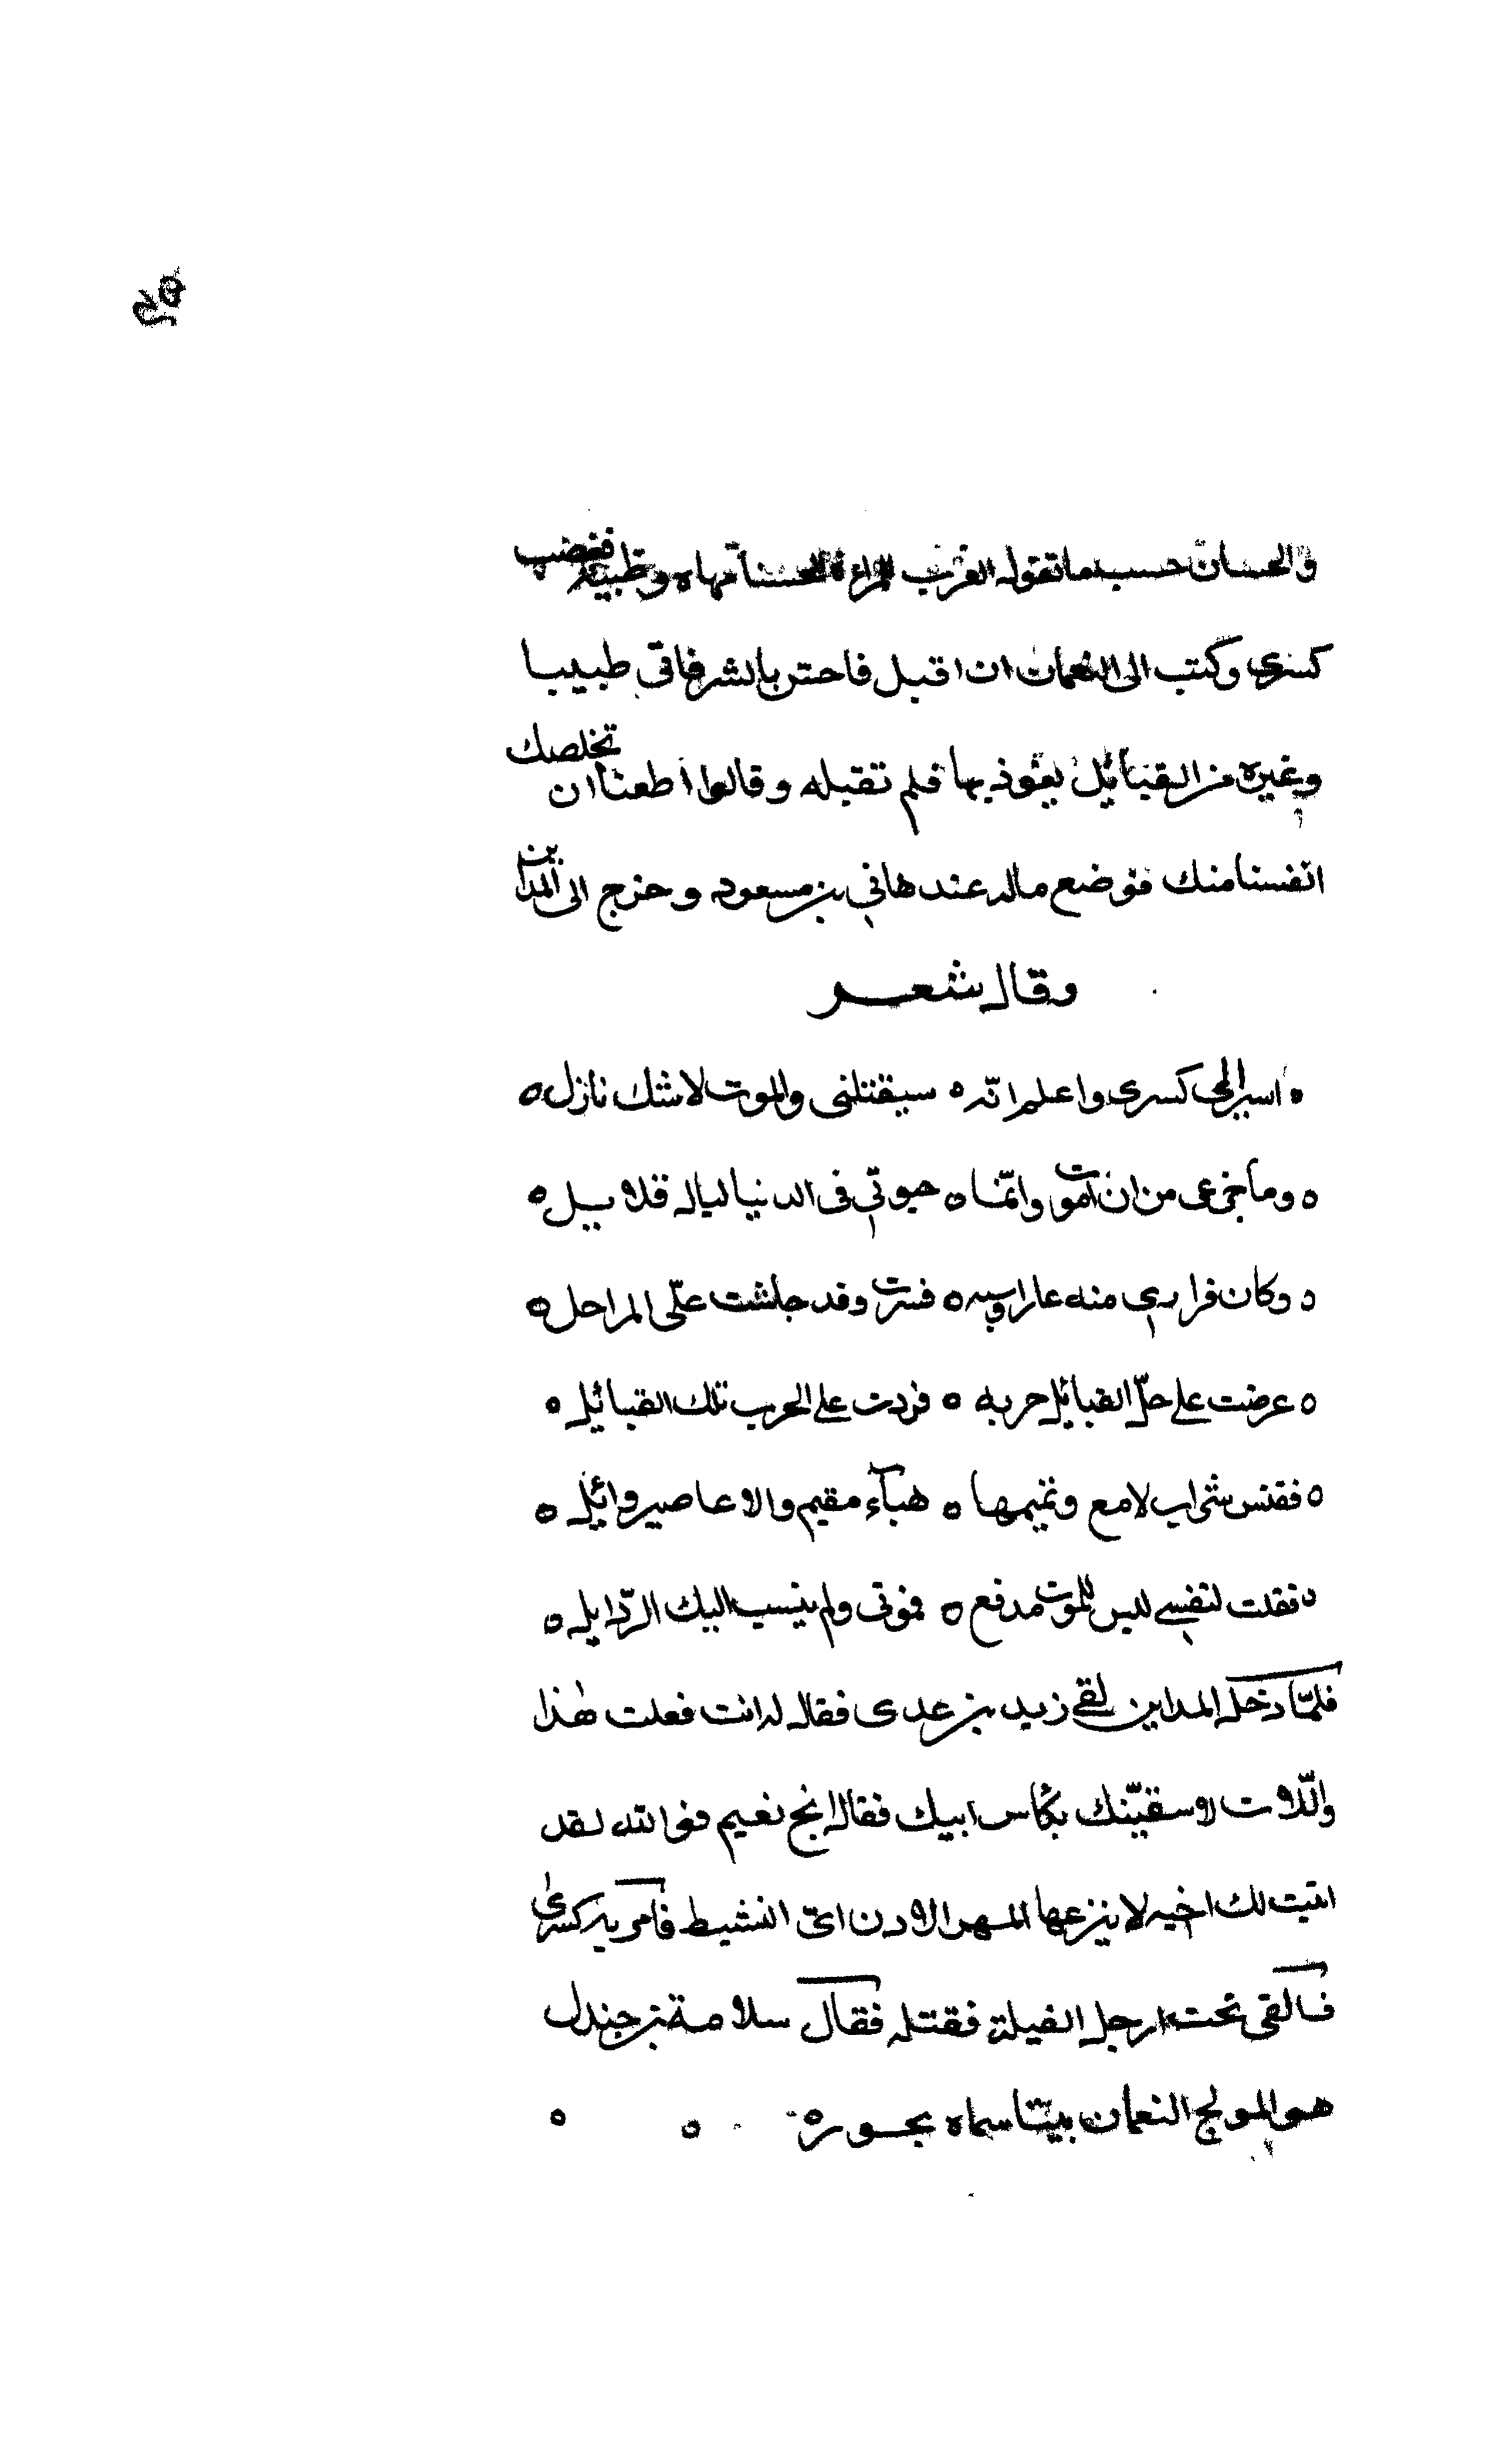 والحسان حسب ما تقوله العرب للمراءة الحسنا مهاه وظبية فغضب
كسرى وكتب الى النعمان ان اقبل فاحتس بالشر فاتى طبيبا
وغيره من القبائل يعوذ بها فلم تقبله وقالوا اطعنا ان تخلصك
انفسنا منك فوضع ماله عند هاني بن مسعود وخرج الى المداين
وقال شعر
ه اسير الى كسرى واعلم انّه ه سيقتلنى والموت لا شك نازل ه
ه وما جزعى من ان اموت وانّما ه حيوتي فى الدنيا ليال قلايل ه
ه وكان فراري منه عارا وسبه ه فسرت وقد جاشت علّى المراحل ه
ه عرضت على حلّ القبائل حربه ه فردت على الحرب تلك القبائل ه
ه فقيس شراب لامع وتميمها ه هبآء مقيم والاعاصير وائل ه
ه فقلت لنفسي ليس للموت مدفع ه فموتى ولم ينسب اليك الرّذايل ه
فلمّا دخل المداين لقى زيد بن عدى فقال له انت فعلت هذا
واللّات لاسقيّنك بكاس ابيك فقال انج نعيم فوالله لقد
اتيت لك اخيه لا ينزعها المهر الارن اى النشيط فامر به كسرى
فالقى تحت ارجل الفيلة فقتله فقال سلامة بن جندل
هو المولج النعمان بيتا سماه بحوره ه ه